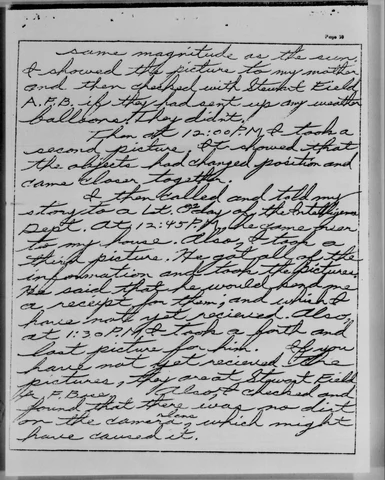 Page 10
same magnitude as the sun.
I showed the picture to my mother
and then checked with Stewart Field
A.F.B. if they had sent up any weather
balloons. They didn't.
Then at 12:00 P.M. I took a
second picture. It showed that
the objects had changed position and
came closer together.
I then called and told my
story to a Lt. O'day of the Intelligence
Dept. At 12:45 P.M. he came over
to my house. Also, I took a
third picture. He got all of the
information and took the pictures.
He said that he would send me
a receipt for them, and which I
have not yet recieved. Also,
at 1:30 P.M. I took a forth and
last picture for him. If you
have not yet recieved the
pictures, they are at Stewart Field
A.F. Base. I also checked and
found that there was no dirt
on the camera lens, which might
have caused it.